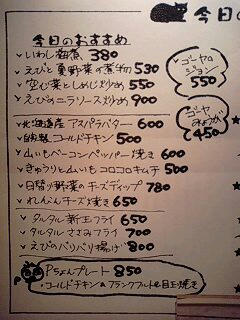 今日のおすすめ
いわし梅煮 380
えびと夏野菜の煮物 530
空心菜としめじ炒め 550
えびのニラソース炒め 900
北海道産アスパラバター 600
自家製コールドチキン 500
山いもベーコンペッパー焼き 600
きゅうりと山いもコロコロキムチ 500
日替り野菜のチーズディップ 780
れんこんチーズ焼き 650
タルタル新玉フライ 650
タルタルささみフライ 700
えびのパリパリ揚げ 800
Pちょんプレート 850
・コールドチキン&フランクフルト&目玉焼き
今日の
ゴーヤの
ジョン
550
ゴーヤ
みょうが
450